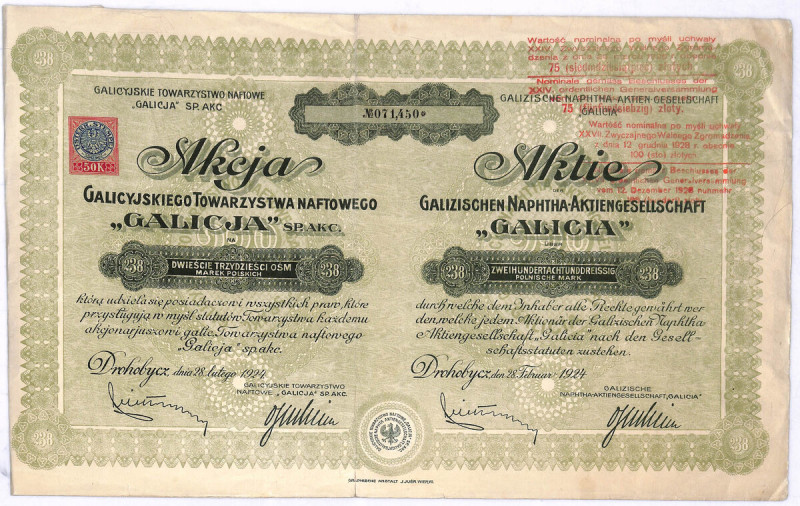 238
238
GALICYJSKIE TOWARZYSTWO NAFTOWE
„GALICJA” SP. AKC
№071,450
GALIZISCHE NAPHTHA-AKTIEN GESELLSCHAFT
GALICIA
Wartość nominalna po myśli uchwały
XXIV.
75 (siedmdziesiąt pięć) złotych.
Nominale gemäss Beschlusses der
XXIV. ordentlichen Generalversammlung
75 (fünfundsiebzig) zloty.
Wartość nominalna po myśli uchwały
XXVII. Zwyczajnego Walnego Zgromadzenia
z dnia 12 grudnia 1928 r. obecnie
100 (sto) złotych.
Beschlusses der
Generalversammlung
vom 12. Dezember 1928 nunmehr
50K
Akcja
GALICYJSKIEGO TOWARZYSTWA NAFTOWEGO
„GALICJA” SP. AKC.
NA
238
DWIEŚCIE TRZYDZIEŚCI OŚM
MAREK POLSKICH
238
którą udziela się posiadaczowi wszystkich praw, które
przysługują w myśl statutów Towarzystwa każdemu
akcjonarjuszowi galic. Towarzystwa naftowego
„Galicja” sp. akc.
Drohobycz, dnia 28. lutego 1924
GALICYJSKIE TOWARZYSTWO
NAFTOWE „GALICJA” SP. AKC.
Aktie
DER
GALIZISCHEN NAPHTHA-AKTIENGESELLSCHAFT
„GALICIA”
ÜBER
238
ZWEIHUNDERTACHTUNDDREISSIG
POLNISCHE MARK
238
durch welche dem Inhaber alle Rechte gewährt wer
den, welche jedem Aktionär der Galizischen Naphtha
Aktiengesellschaft „Galicia” nach den Gesell-
schaftsstatuten zustehen.
Drohobycz, den 28. Februar 1924
GALIZISCHE
NAPHTHA-AKTIENGESELLSCHAFT „GALICIA”
238
238